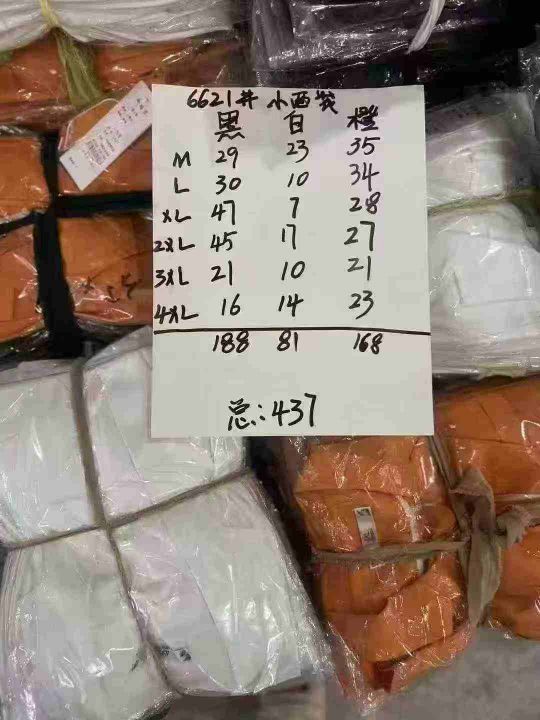 6621# 小西装
黑 白 橙
M 29 23 35
L 30 10 34
XL 47 7 28
2XL 45 17 27
3XL 21 10 21
4XL 16 14 23
188 81 168
总:437